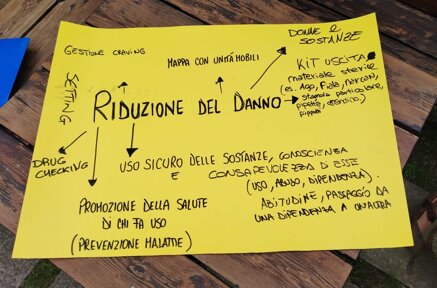 DONNE E
SOSTANZE
GESTIONE CRAVING
MAPPA CON UNITÀ MOBILI
KIT USCITA
materiale sterile
(es. Ago, Fiale, narcan,
stagnola particolare,
pipette,
pippata
SETTING
RIDUZIONE DEL DANNO
DRUG
CHECKING
USO SICURO DELLE SOSTANZE, CONOSCIENZA
E CONSAPEVOLEZZA DI ESSE
(USO, ABUSO, DIPENDENZA).
ABITUDINE, PASSAGGIO DA
UNA DIPENDENZA A UN'ALTRA
PROMOZIONE DELLA SALUTE
DI CHI FA USO
(PREVENZIONE MALATTIE)